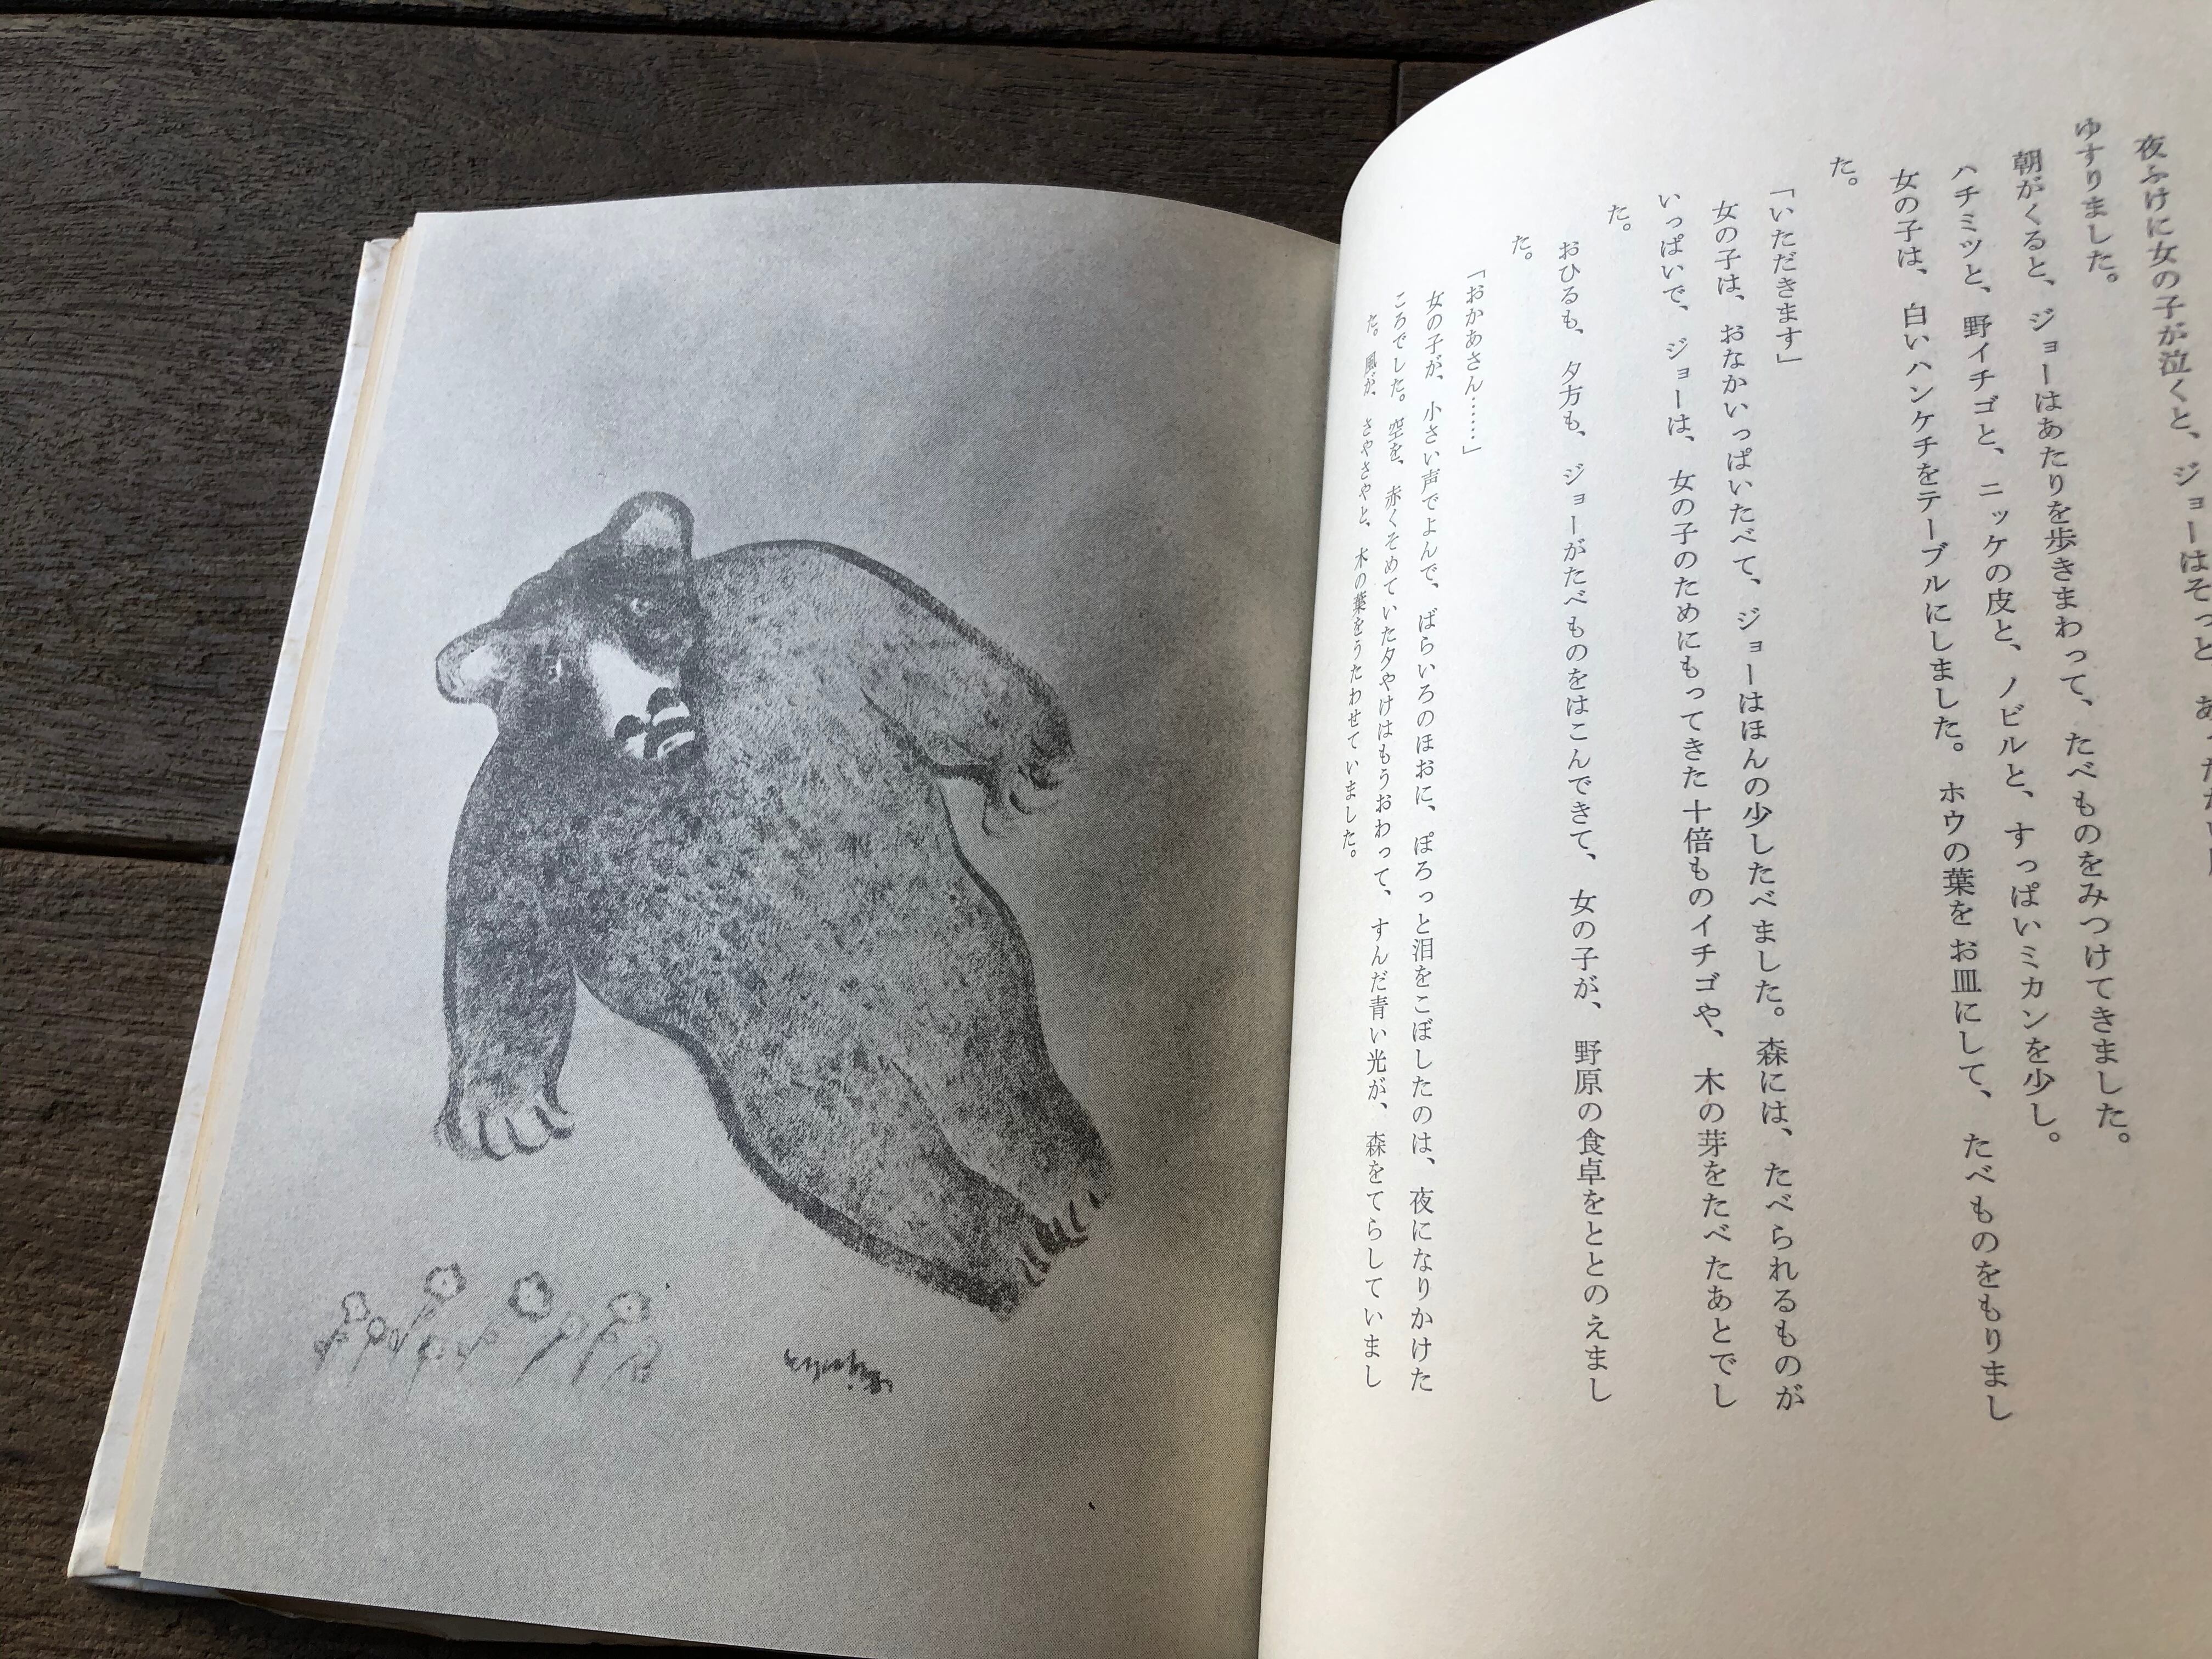 夜ふけに女の子が泣くと、ジョーはそっと、
ゆすりました。
朝がくると、ジョーはあたりを歩きまわって、たべものをみつけてきました。
ハチミツと、野イチゴと、ニッケの皮と、ノビルと、すっぱいミカンを少し。
女の子は、白いハンケチをテーブルにしました。ホウの葉をお皿にして、たべものをもりまし
た。
「いただきます」
女の子は、おなかいっぱいたべて、ジョーはほんの少したべました。森には、たべられるものが
いっぱいで、ジョーは、女の子のためにもってきた十倍ものイチゴや、木の芽をたべたあとでし
た。
おひるも、夕方も、ジョーがたべものをはこんできて、女の子が、野原の食卓をととのえまし
た。
「おかあさん……」
女の子が、小さい声でよんで、ばらいろのほおに、ぽろっと泪をこぼしたのは、夜になりかけた
ころでした。空を、赤くそめていた夕やけはもうおわって、すんだ青い光が、森をてらしていまし
た。風が、さやさやと、木の葉をうたわせていました。